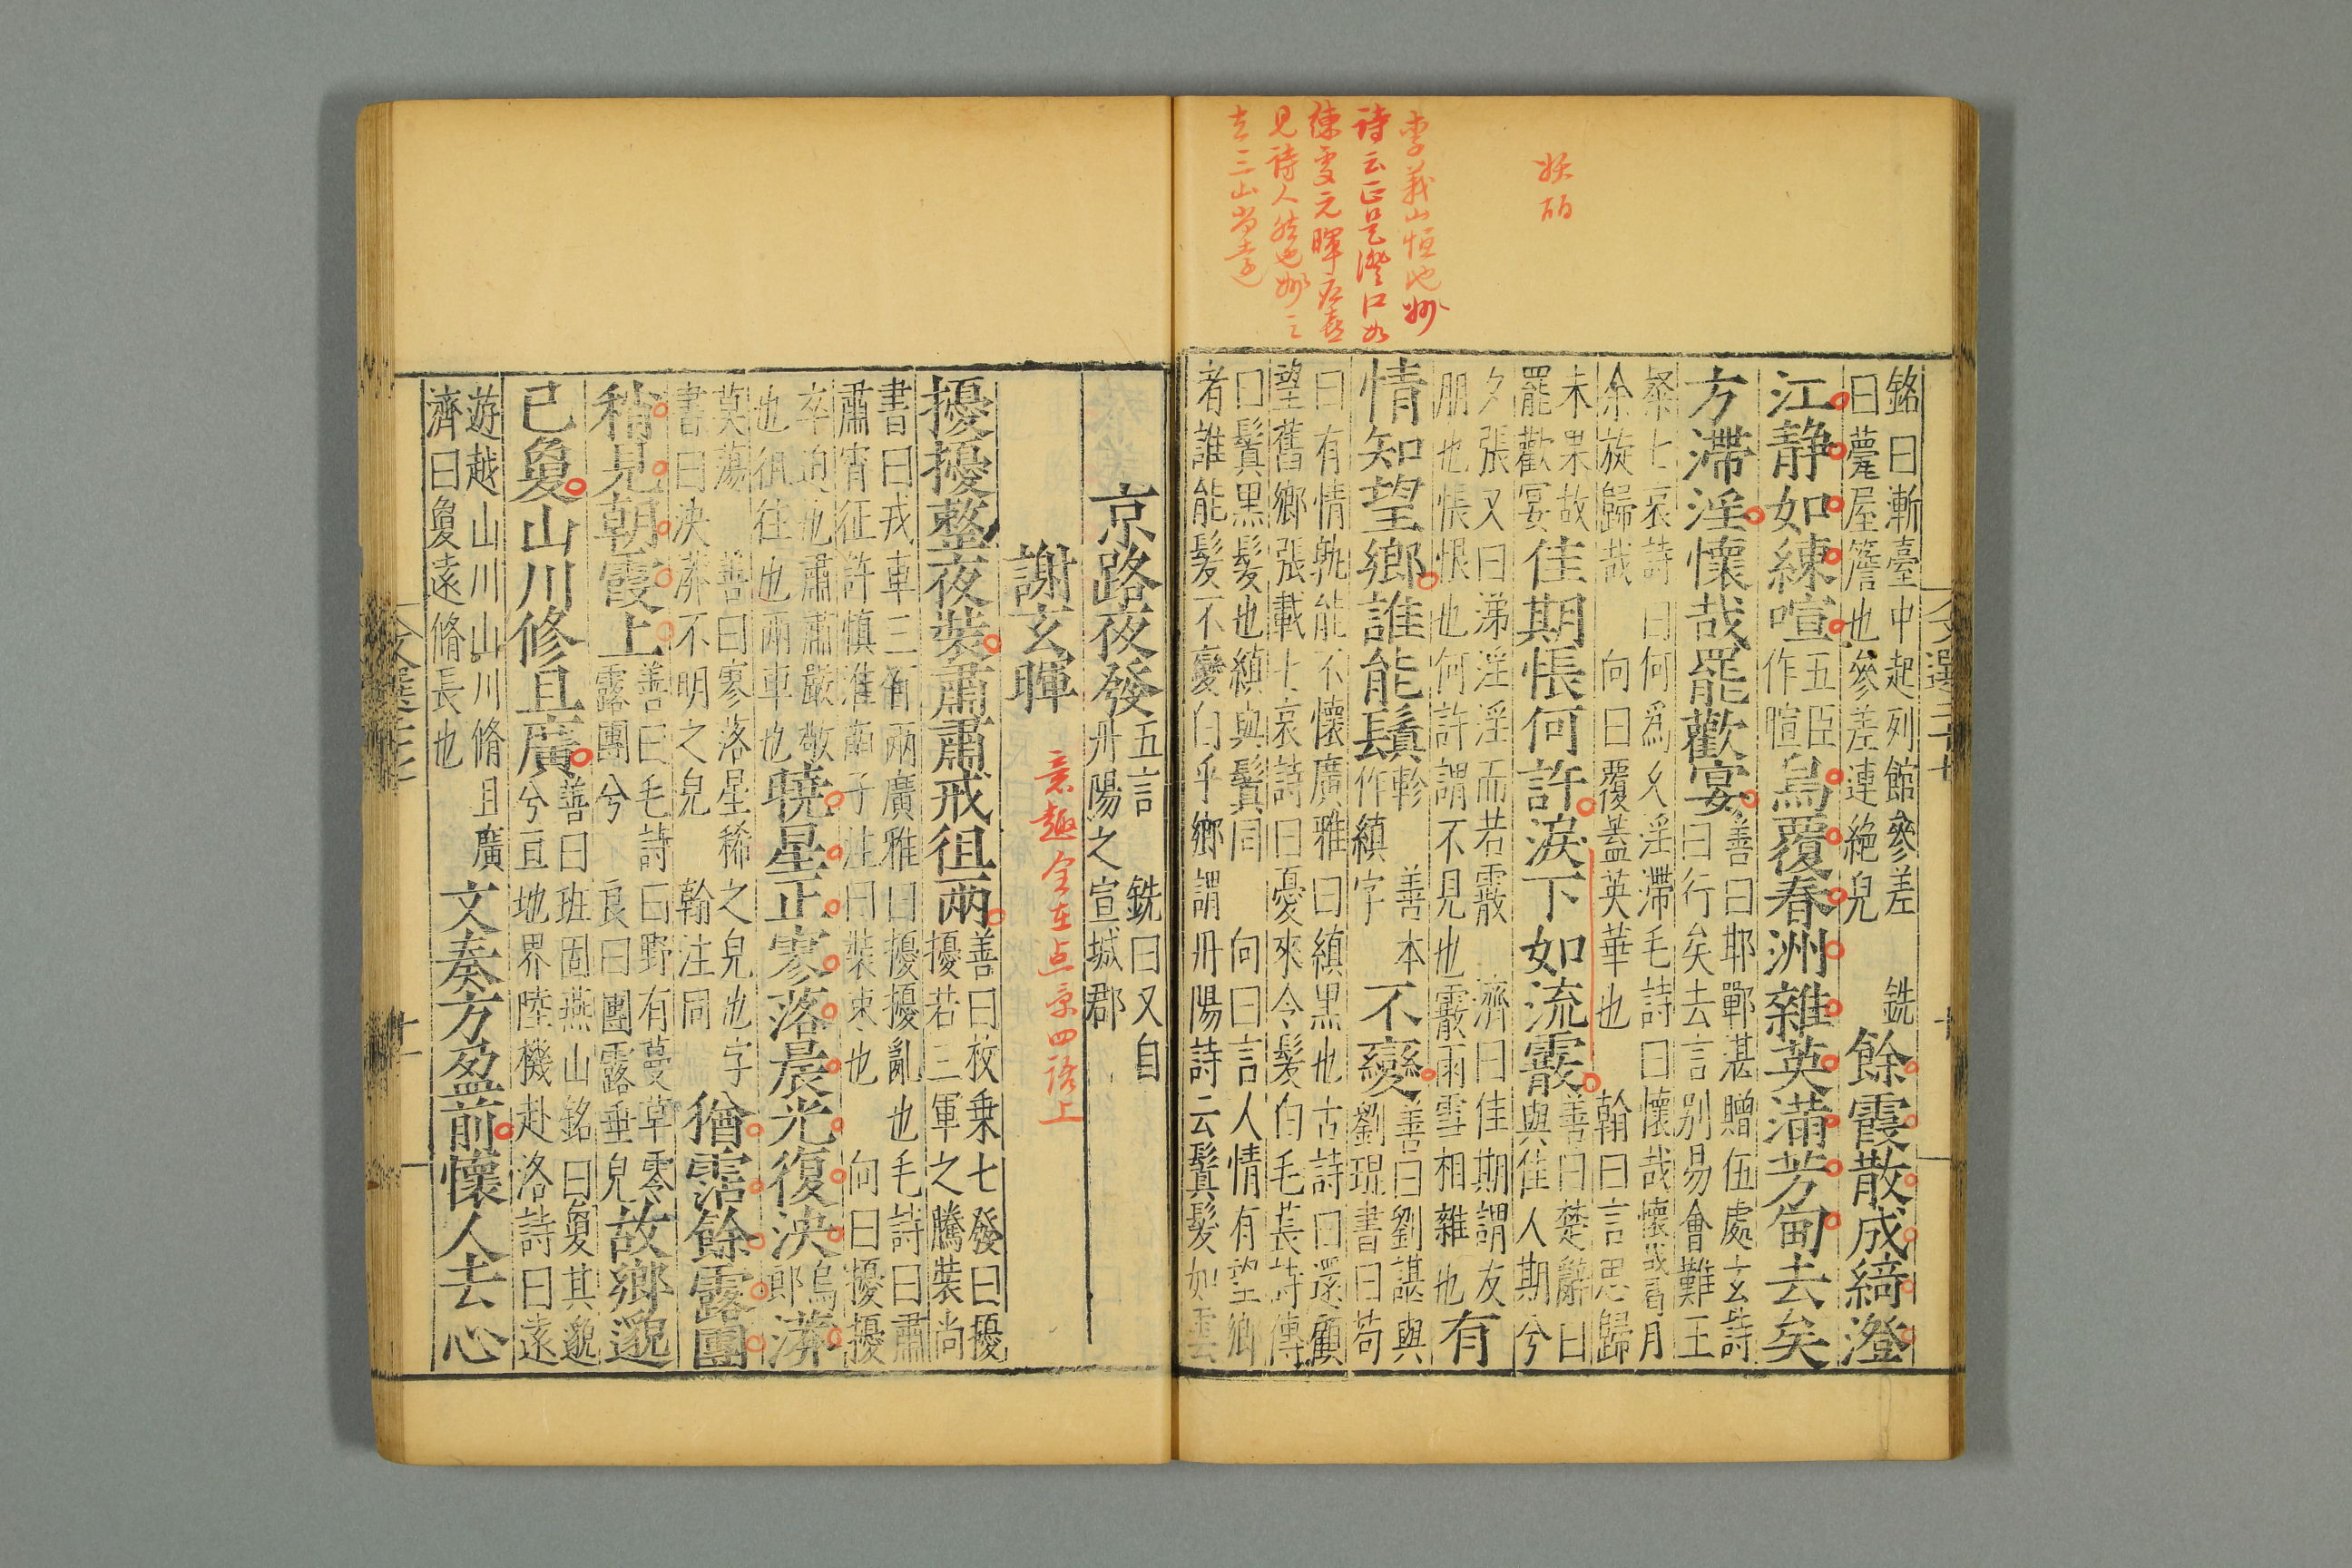 妖
李義山恒地妙
詩云正是澄江如
練處元暉應喜
見詩人然也妙之
去三山尚遠
文選二十七
銘曰漸臺中起列館參差 銑
曰甍屋簷也參差連絶皃
餘霞散成綺澄
江静如練喧
五臣
作暄
鳥覆春洲雜英滿芳甸去矣
方滯淫懷哉罷歡宴
善曰耶鄲湛贈伍處玄詩
曰行矣去言别易會難王
粲七哀詩曰何爲久淫滯毛詩曰懷哉懷哉曷月
余旋歸哉 向曰覆蓋英華也 翰曰言思歸
未果故
罷歡宴
佳期悵何許淚下如流霰
善曰楚辭曰
與佳人期兮
夕張又曰涕淫淫而若霰 濟曰佳期謂友
朋也悵恨也何許謂不見也霰雨雪相雜也
有
情知望鄉誰能鬒
幹 善本
作縝字
不變
善曰劉諶與
劉琨書曰苟
曰有情孰能不懷廣雅曰縝黑也古詩曰還顧
望舊鄉張載七哀詩曰憂來令髮白毛萇詩傳
曰鬒黒髮也縝與鬒同 向曰言人情有望鄉
者誰能髮不變白乎鄉謂丹陽詩云鬒髮如雲
京路夜發
五言 銑曰又自
丹陽之宣城郡
謝玄暉
意趣全在点景四語上
擾擾整夜裝肅肅戒徂兩
善曰枚乗七發曰擾
擾若三軍之騰裝尚
書曰戎車三兩廣雅曰擾擾亂也毛詩曰肅
肅宵征許慎淮南子注曰裝束也 向曰擾擾
卒迫也肅肅嚴敬
也徂往也兩車也
曉星正寥落晨光復泱
烏
郎
漭
莫蕩 善曰寥落星稀之皃也字
書曰泱漭不明之皃 翰注同
猶霑餘露團
稍見朝霞上
善曰毛詩曰野有蔓草零
露團兮 良曰團露垂皃
故鄉邈
已夐山川修且廣
善曰班固燕山銘曰夐其邈
兮亘地界陸機赴洛詩曰遠
遊越山川山川脩且廣
濟曰夐遠脩長也
文奏方盈前懷人去心